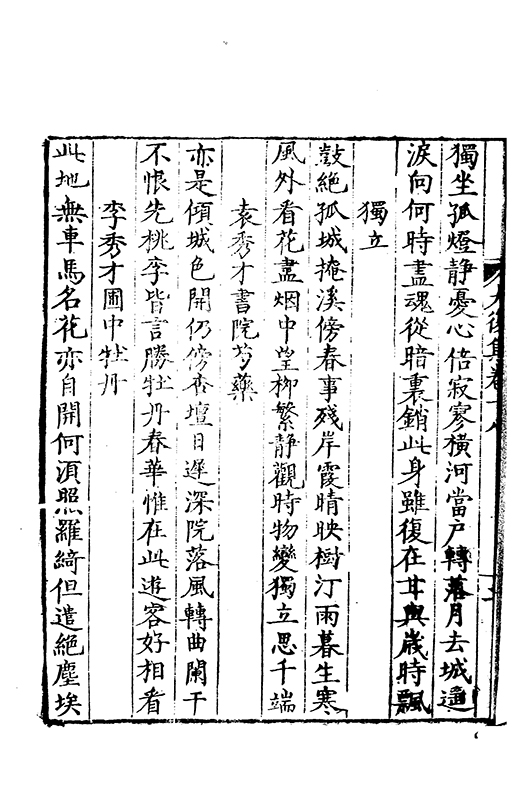 獨坐孤燈静憂心倍寂寥橫河當户轉落月去城遥
淚向何時盡魂從暗裏銷此身雖復在甘與歲時飄
獨立
鼓絶孤城掩溪傍春事殘岸霞晴映樹汀雨暮生寒
風外看花盡烟中望柳繁静觀時物變獨立思千端
袁秀才書院芍藥
亦是傾城色開仍傍杏壇日遲深院落風轉曲闌干
不恨先桃李皆言勝牡丹春華惟在此遊客好相看
李秀才圃中牡丹
此地無車馬名花亦自開何須照羅綺但遣絶塵埃
後集卷十八